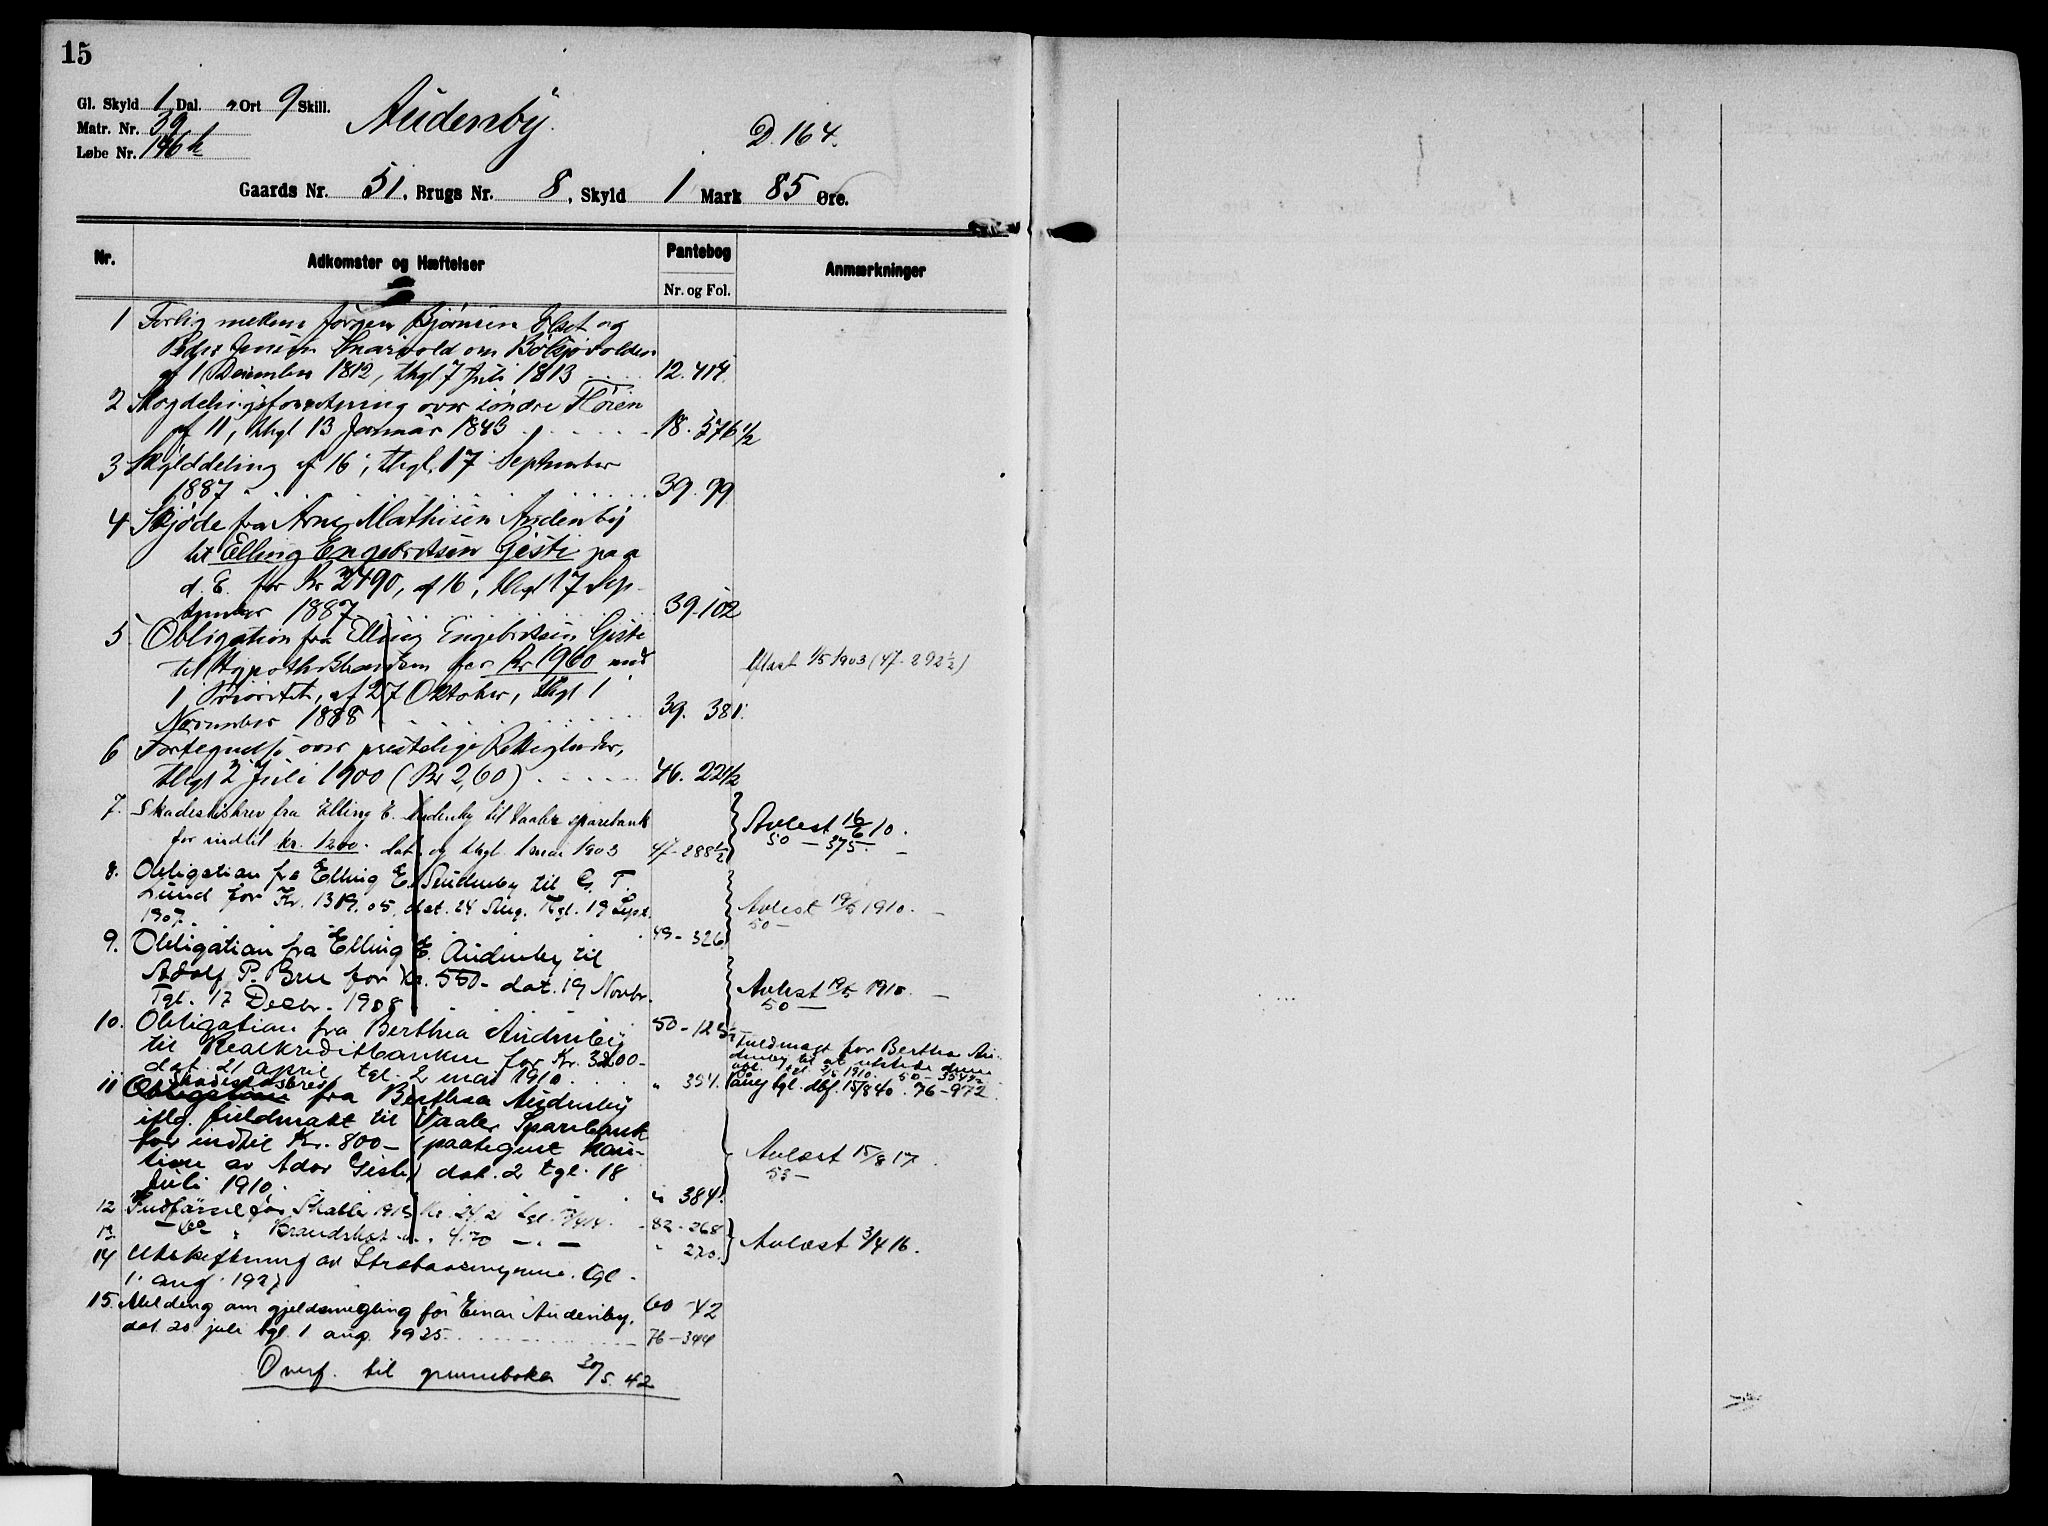 15
Gl. Skyld 1 Dal. " Ort 9 Skill.
Matr. Nr. 39
Løbe Nr. 146h
Audenby.
D. 164.
Gaards Nr. 51, Brugs Nr. 8, Skyld 1 Mark 85 Øre.
Nr. Adkomster og Hæftelser Pantebog Nr. og Fol. Anmærkninger
1 Forlig mellem Jørgen Bjørnsen og
Peder Jensen om
af 1 December 1812, thgl 7 Juli 1813 12. 414.
2 Skogdelingsforretning over søndre Fløien
af 11, thgl 13 Januar 1843 18. 576 1/2
3 Skylddeling af 16, thgl. 17 September
1887 39. 99
4 Skjøde fra Arne Mathisen Audenby
til Elling Engebretsen Gjeste paa
d. E. for Kr 2490, af 16, thgl 17 Sep-
tember 1887 39. 102
5 Obligation fra Elling Engebretsen Gjeste
til Hypothekbanken for Kr 1960 med
1 Prioritet, af 27 Oktober, thgl 1
November 1888 39. 381.
Avlæst 1/5 1903 (47-292 1/2)
6 Fortegnelse over prestelige Rettigheder,
thgl 2 Juli 1900 (Kr 2,60) 46. 221/2
7. Skadesløsbrev fra Elling E. Audenby til Vaaler sparebank
for indtil kr. 1200. dat. og thgl. 1 mai 1903 47-288 1/2
Avlest 16/6 10.
50 — 375. —
8. Obligation fra Elling E. Audenby til G. T.
Lund for Kr. 1319.05, dat. 24 Aug. Tgl. 19 Sept.
1907. 49-326
Avlest 19/5 1910. —
50 —
9. Obligation fra Elling E. Audenby til
Adolf P. Bru for Kr. 550- dat. 19 Novbr.
Tgl. 17 Decbr. 1908 50-125
Avlest 19/5 1910. —
50 —
10. Obligation fra Berthea Audenby
til Realkreditbanken for Kr. 3200-
dat. 21 april tgl. 2 mai 1910. " 354.
Fuldmagt for Berthea Au-
denby til at utstede denne
obl. tgl. 2/5 1910. 50-354 1/2
tgl. dbf. 15/8 40. 76-972.
11 Skadesløsbrev
Obligation fra Berthea Audenby
iflg. fuldmakt til Vaaler Sparebank
for indtil Kr. 800- (paategnet kau-
tion av Ador Gjeste) dat. 2 tgl. 18
Juli 1910. " 384.
Avlæst 15/8 17.
53 —
12 Pudførsel for Skatter 1913 Kr. 24.21 tgl. 7/4 14. 82-268
13. — do " Brandskat " 4.70 — " — " 270.
Avlæst 3/4 16.
14 Utskiftning av . Tgl.
1. aug. 1927 60-42
15. Melding om gjeldsmegling for Einar Audenby.
dat. 20. juli tgl. 1. aug. 1935. 76-344
Overf. til grunnboka 20/5. 42